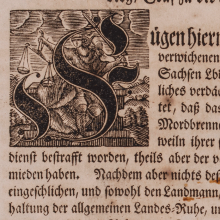 Fügen hiern
verwichenen
Sachsen Lbe
liches verdäc
tet, daß das
Mordbrenn
weiln ihrer s
dienst bestrafft worden, theils aber der v
mieden haben. Nachdem aber nichts des
eingeschlichen, und sowohl den Landmann
haltung der allgemeinen Landes-Ruhe, u